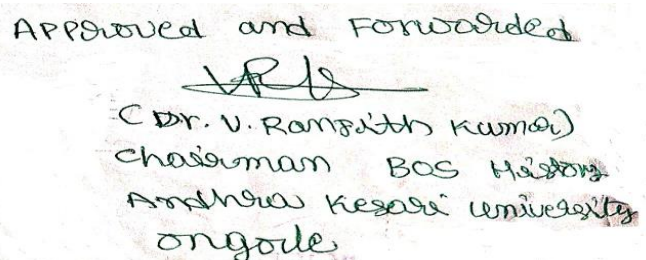 Approved and Forwarded
(Dr. V. Ranjith Kumar)
Chairman BOS History
Andhra Kesari University
Ongole